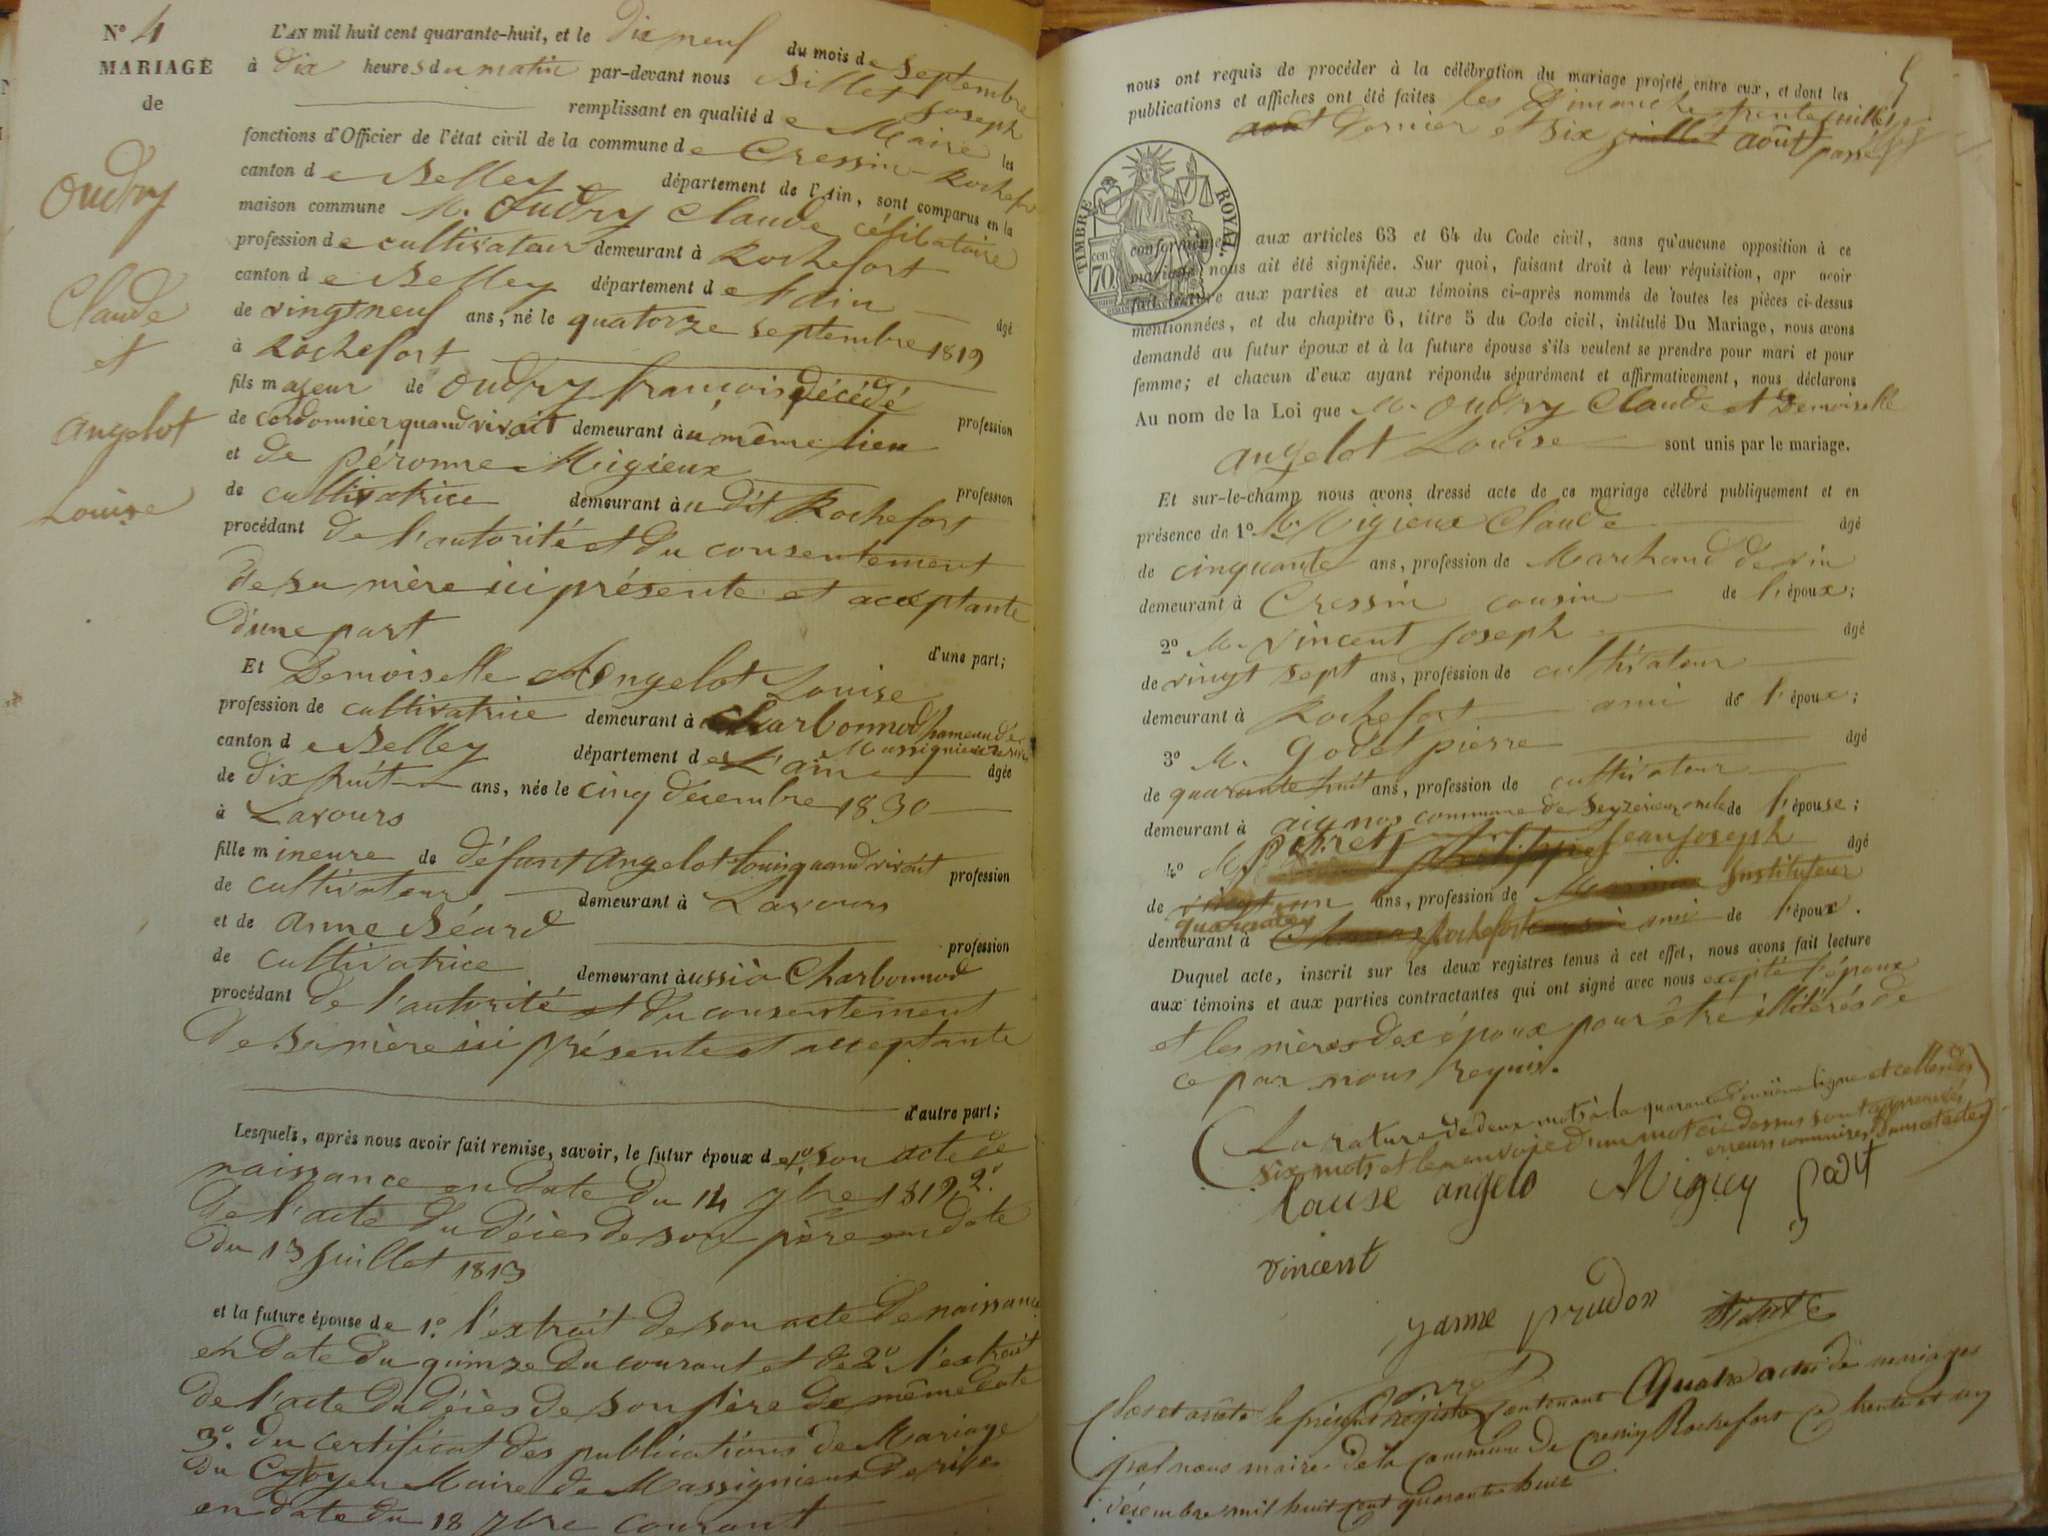 N° 4
MARIAGE
de
Oudry
Claude
et
Angelot
Louise
L'AN mil huit cent quarante-huit, et le dix neuf du mois de Septembre
à dix heures du matin par-devant nous Billet Joseph
remplissant en qualité de Maire les
fonctions d'Officier de l'état civil de la commune de Cressin Rochefort
canton de Belley département de l'Ain, sont comparus en la
maison commune M. Oudry Claude célibataire
profession de cultivateur demeurant à Rochefort
canton de Belley département de l'ain âgé
de vingt neuf ans, né le quatorze septembre 1819
à Rochefort
fils majeur de Oudry françois décédé profession
de cordonnier quand vivait demeurant àu même lieu
et de Péronne Migieux profession
de cultivatrice demeurant àu dit Rochefort
procédant de l'autorité et du consentement
de sa mère ici présente et acceptante
d'une part
d'une part;
Et Demoiselle Angelot Louise
profession de cultivatrice demeurant à Charbonnod hameau de
Massignieu de rive
canton de Belley département de L'ain âgée
de dix huit ans, née le cinq décembre 1830
à Lavours
fille mineure de défunt Angelot Louis quand vivait profession
de cultivateur demeurant à Lavours
et de Anne Béard profession
de cultivatrice demeurant àussi à Charbonnod
procédant de l'autorité et du consentement
de sa mère ici présente et acceptante
d'autre part;
Lesquels, après nous avoir fait remise, savoir, le futur époux de 1° son acte de
naissance en date du 14 7bre 1819 2°
de l'acte du décès de son père en date
du 13 Juillet 1813
et la future épouse de 1° l'extrait de son acte de naissance
en date du quinze du courant et de 2° l'extrait
de l'acte du décès de son père de même date
3° du certificat des publications de Mariage
du Cytoyen Maire de Massignieux de rive
en date du 18 7bre courant
5
nous ont requis de procéder à la célébration du mariage projeté entre eux, et dont les
publications et affiches ont été faites les Dimanche trente juillet
août dernier et six juillet août passé
TIMBRE ROYAL.
cen 70.
conformément aux articles 63 et 64 du Code civil, sans qu'aucune opposition à ce
mariage nous ait été signifiée. Sur quoi, faisant droit à leur réquisition, apr avoir
fait lecture aux parties et aux témoins ci-après nommés de toutes les pièces ci-dessus
mentionnées, et du chapitre 6, titre 5 du Code civil, intitulé Du Mariage, nous avons
demandé au futur époux et à la future épouse s'ils veulent se prendre pour mari et pour
femme; et chacun d'eux ayant répondu séparément et affirmativement, nous déclarons
Au nom de la Loi que M. Oudry Claude et Demoiselle
Angelot Louise sont unis par le mariage.
Et sur-le-champ nous avons dressé acte de ce mariage célébré publiquement et en
présence de 1° M. Migieux Claude âgé
de cinquante ans, profession de Marchand de vin
demeurant à Cressin cousin de l'époux;
2° M. Vincent Joseph âgé
de vingt sept ans, profession de cultivateur
demeurant à Rochefort ami de l'époux;
3° M. Godet pierre âgé
de quarante huit ans, profession de cultivateur
demeurant à aignos commune de Seyzérieux oncle de l'épouse;
4° M. Poirret Jean Joseph âgé
de vingt un ans, profession de Instituteur
demeurant à Rochefort ami de l'époux.
Duquel acte, inscrit sur les deux registres tenus à cet effet, nous avons fait lecture
aux témoins et aux parties contractantes qui ont signé avec nous excepté l'époux
et les mères des époux pour être illitérés de
ce par nous requis.
La rature de deux mots à la quarante deuxième ligne et celle des
six mots et le renvoi d'un mot ci dessus sont approuvés
Lauise angelo Migieu godet
vincent
yanne prudon
Clos et arrêté le présent régistre contenant Quatre actes de mariages
par nous maire de la commune de Cressin Rochefort ce trente et un
décembre mil huit cent quarante huit